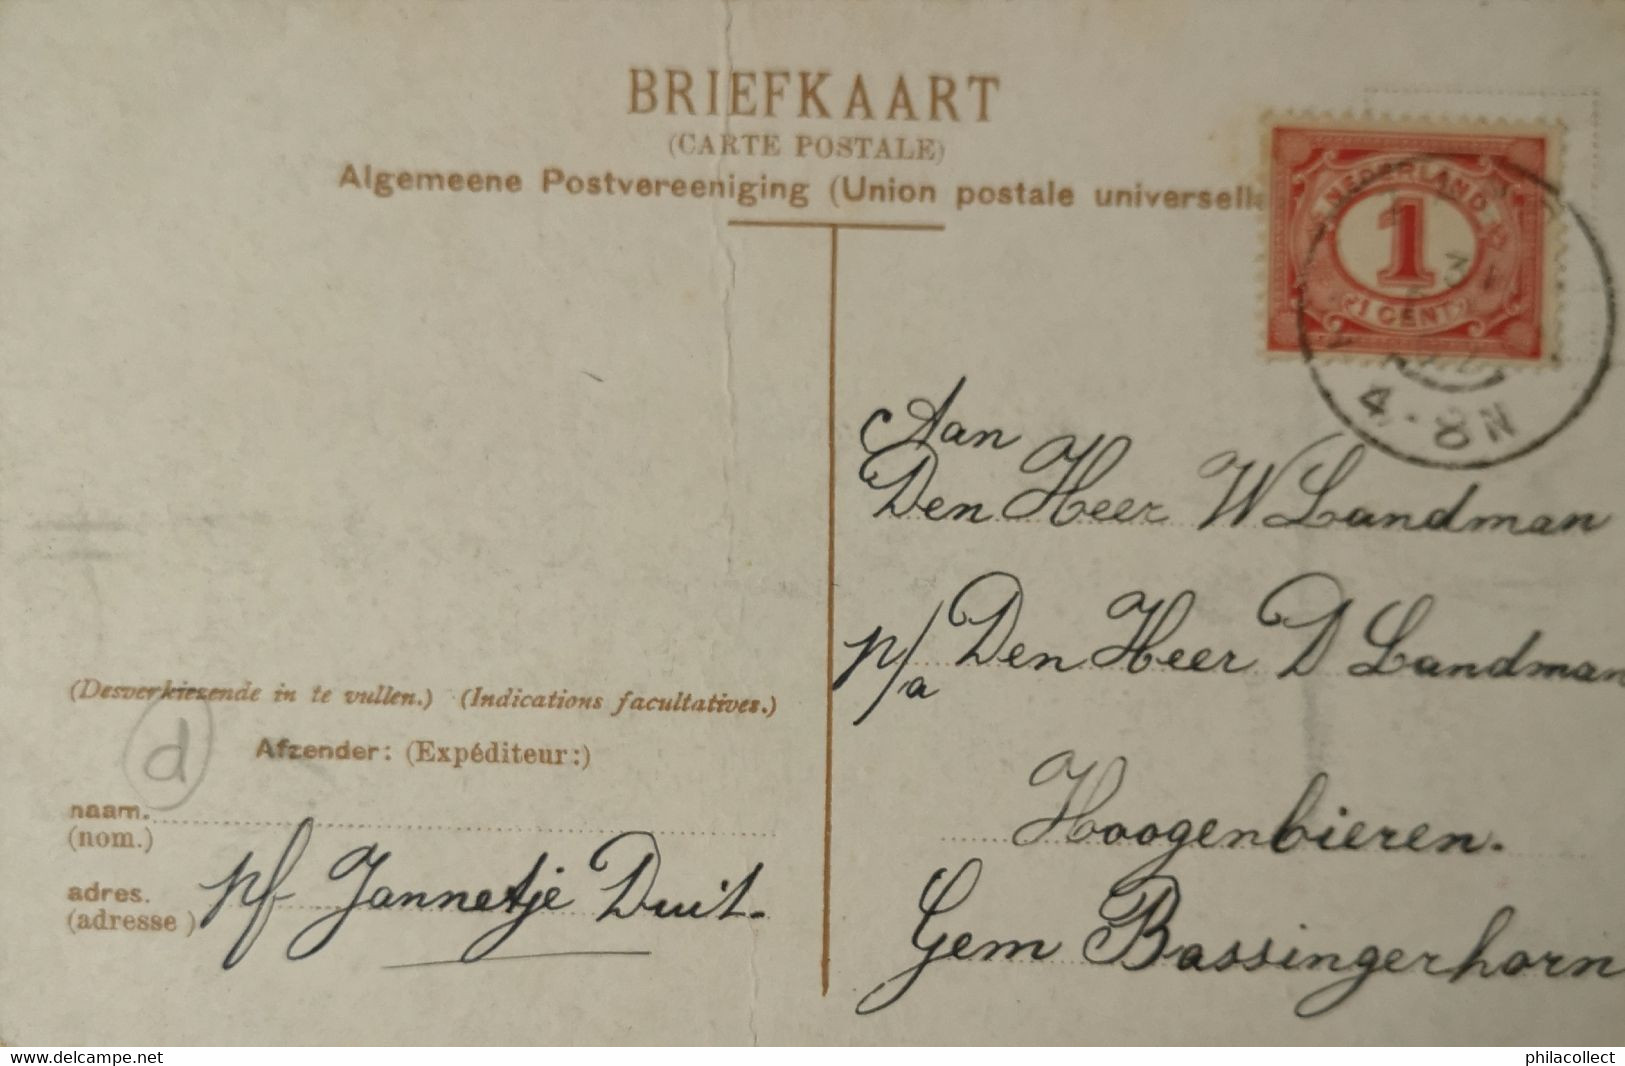 BRIEFKAART
(CARTE POSTALE)
Algemeene Postvereeniging (Union postale universelle
NEDERLAND
1
1 CENT
4-8N
Aan
Den Heer W Landman
p/a Den Heer D Landman
Hoogenbieren.
Gem Bassingerhorn
(Desverkiezende in te vullen.) (Indications facultatives.)
d
Afzender: (Expéditeur:)
naam.
(nom.)
adres.
(adresse)
pf Jannetje Duit.
www.delcampe.net
philacollect